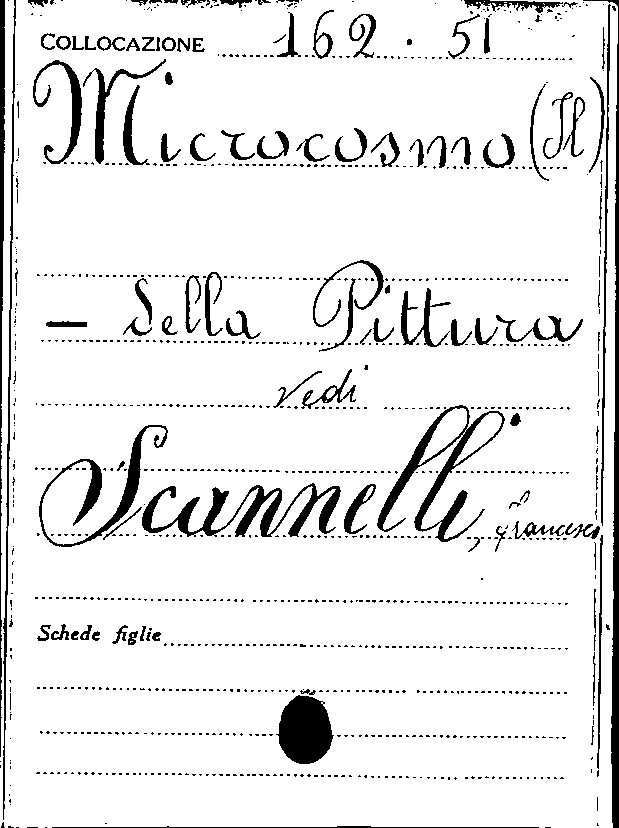 COLLOCAZIONE 162 . 51
Microcosmo (Il)
— della Pittura
vedi
Scannelli, Francesco
Schede figlie